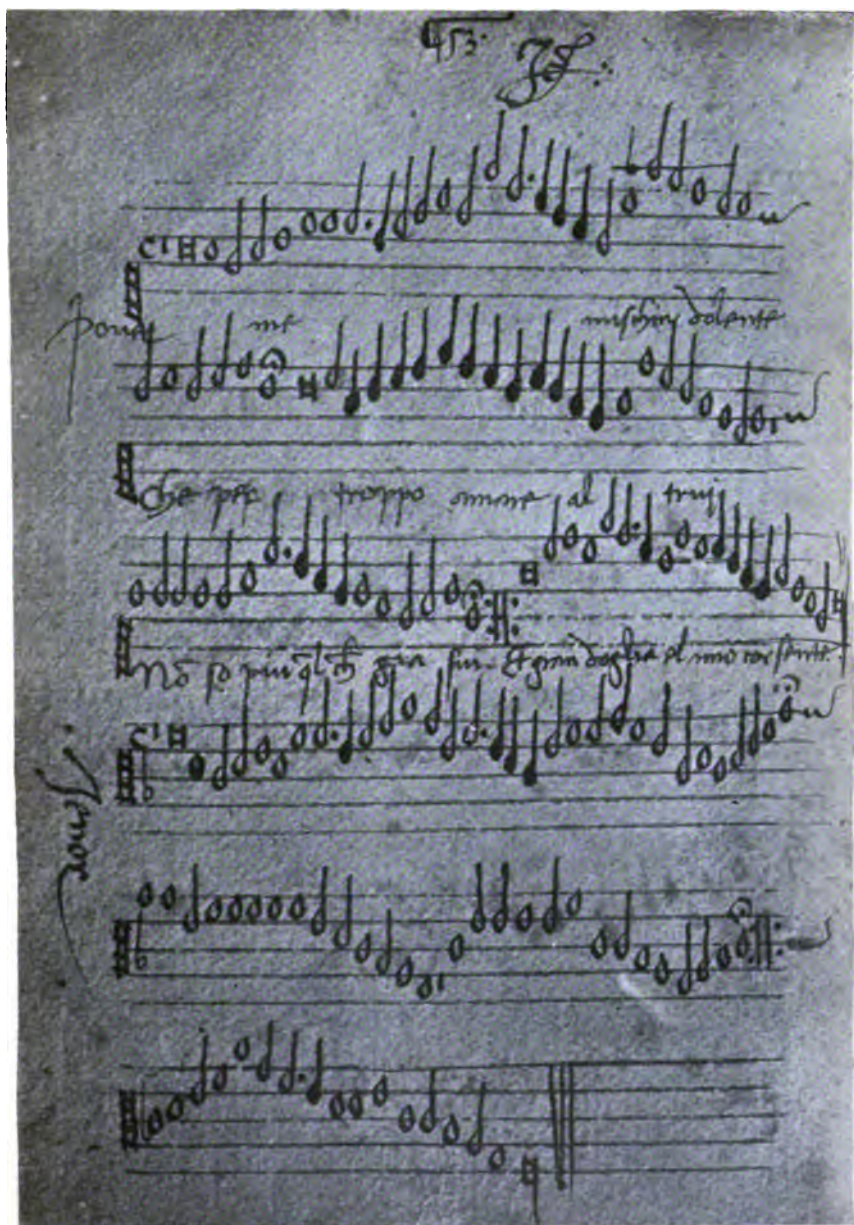 453.
povere me mischin dolente
che per troppo amare al truj
Nō so piu q̄l ch̄ gia fui Et gran doglia el mio cor sente
Tenor